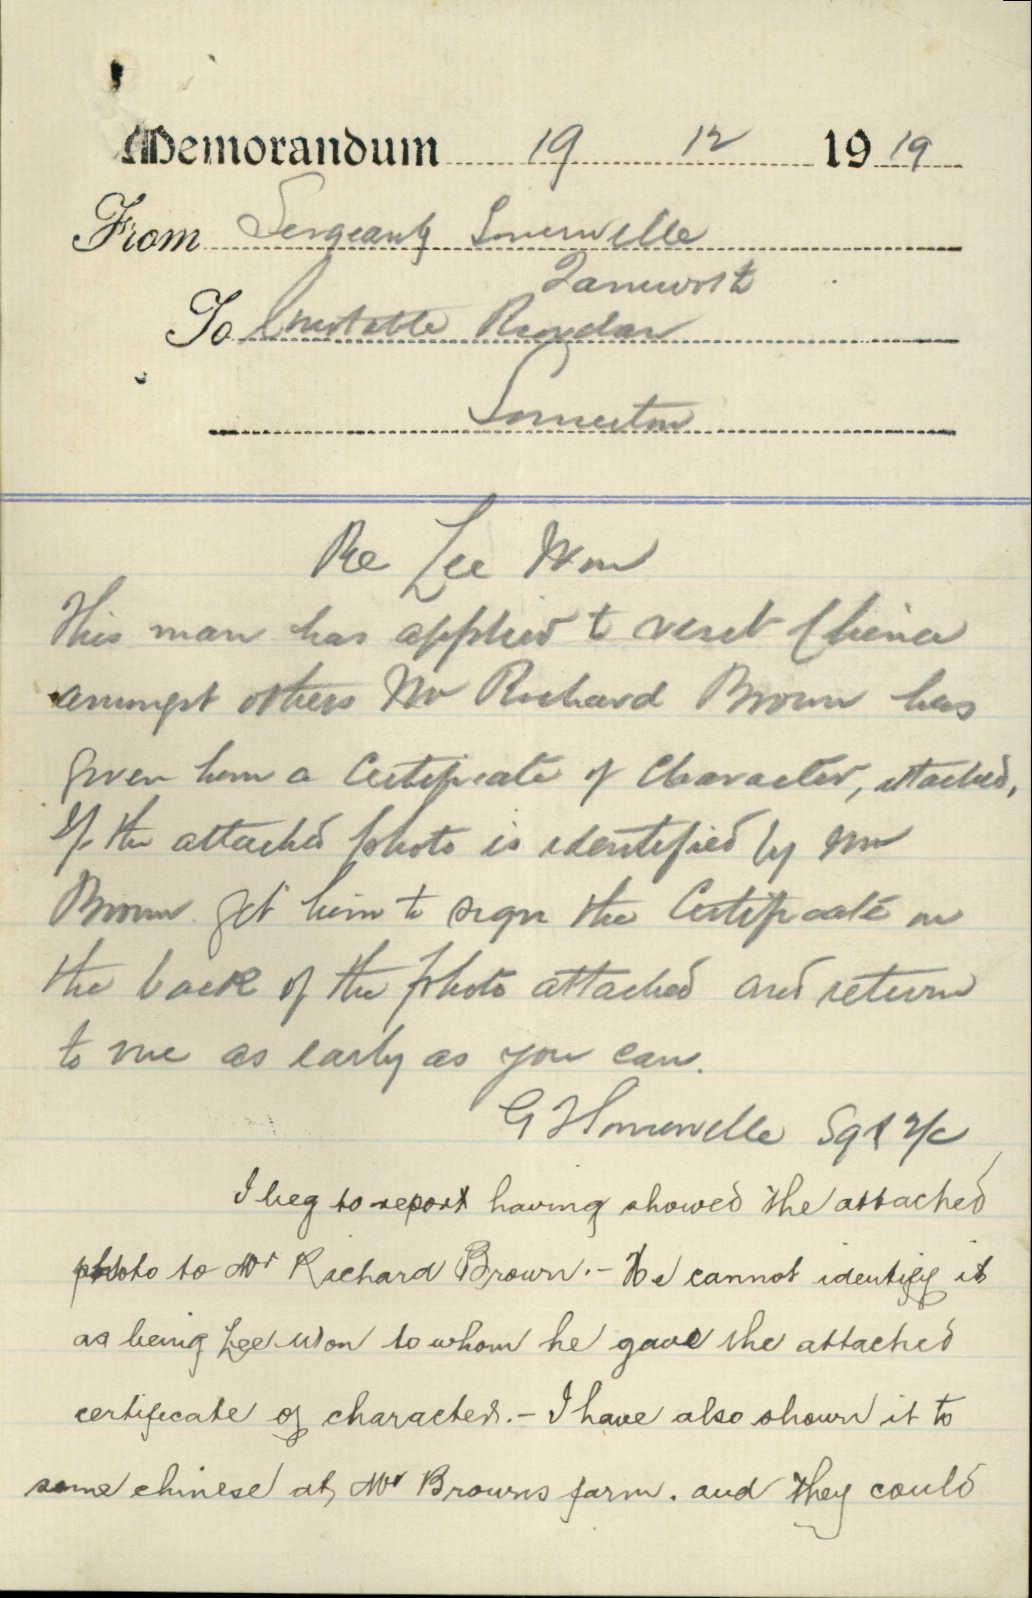 Memorandum 19 12 1919
From Sergeant Somerville
Tamworth
To Constable Riordan
Somerton
Re Lee Won
This man has applied to visit China
amongst others Mr Richard Brown has
given him a Certificate of Character, attached,
If the attached photo is identified by Mr
Brown get him to sign the Certificate on
the back of the photo attached and return
to me as early as you can.
G Somerville Sgt
I beg to report having showed the attached
photo to Mr Richard Brown. - He cannot identify it
as being Lee Won to whom he gave the attached
certificate of character. - I have also shown it to
some chinese at Mr Browns farm. and they could